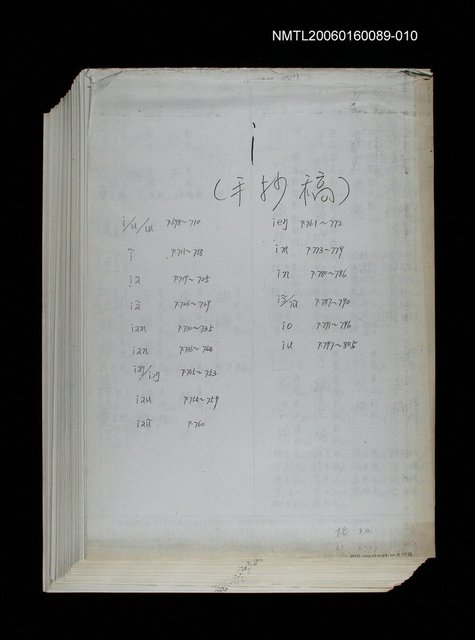 NMTL20060160089-010
i
(手抄稿)
i/ɯ/ɯa P.698~710
ĩ P.711~718
ia P.719~725
iã P.726~729
iam P.730~735
ian P.736~744
iaŋ/iɔŋ P.745~753
iau P.754~759
iaũ P.760
ieŋ P.761~772
im P.773~779
in P.780~786
P.787~790
io P.791~796
iu P.797~805